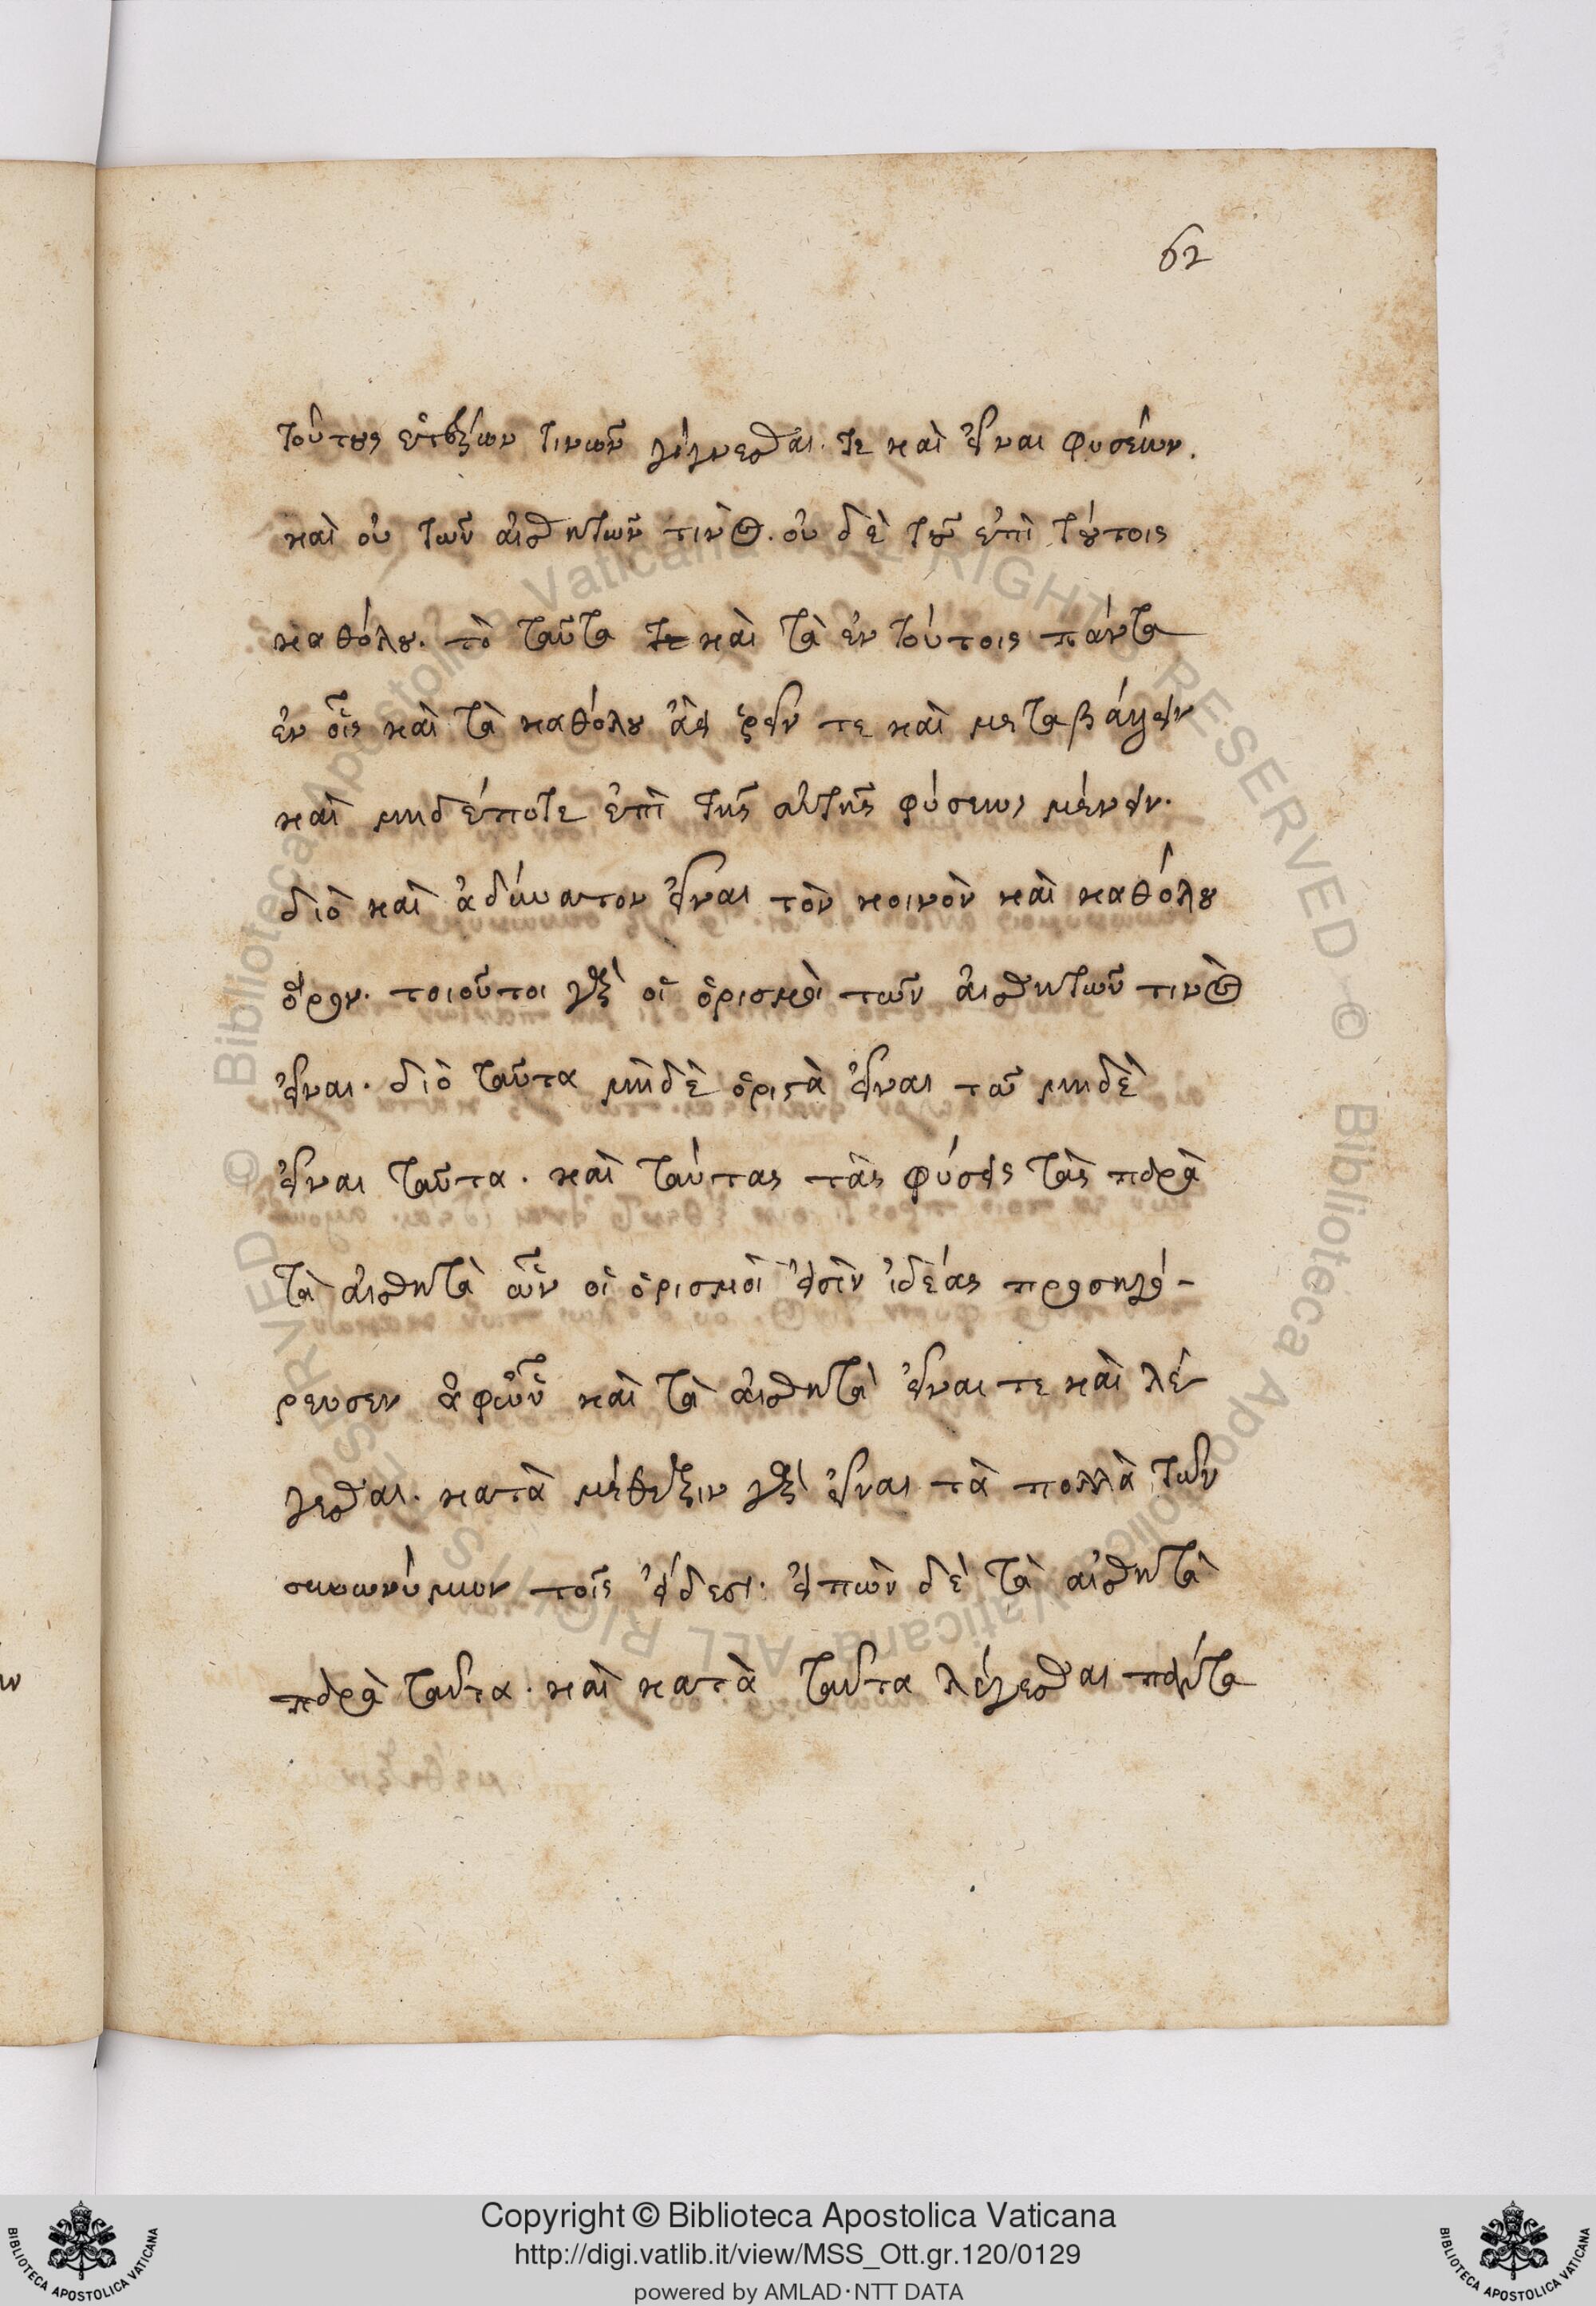 62
τούτους ἑτέρων τινῶν γίγνεσθαι. τε καὶ εἶναι φυσέων.
καὶ οὐ τῶν αἰσθητῶν τινὸς. οὐ δὲ τοῦ ἐπὶ τούτοις
καθόλου. τὸ ταῦτα τε καὶ τὰ ἐν τούτοις πάντα
ἐν οἷς καὶ τὰ καθόλου ἀεὶ ῥεῖν τε καὶ μεταβάλλειν
καὶ μηδέποτε ἐπὶ τῆς αὐτῆς φύσεως μένειν.
διὸ καὶ ἀδύνατον εἶναι τὸν κοινὸν καὶ καθόλου
ὅρον. τοιοῦτοι γὰρ οἱ ὁρισμοὶ τῶν αἰσθητῶν τινὸς
εἶναι. διὸ ταῦτα μηδὲ ὁριστὰ εἶναι τῶ μηδὲ
εἶναι ταῦτα. καὶ ταύτας τὰς φύσεις τὰς παρὰ
τὰ αἰσθητὰ ὧν οἱ ὁρισμοί εἰσὶν ἰδέας προσηγό-
ρευσεν ἀφ' ὧν καὶ τὰ αἰσθητὰ εἶναι τε καὶ λέ
γεσθαι. κατὰ μέθεξιν γὰρ εἶναι τὰ πολλὰ τῶν
συνωνύμων τοῖς εἴδεσι. εἰπὼν δὲ τὰ αἰσθητὰ
παρὰ ταῦτα. καὶ κατὰ ταῦτα λέγεσθαι πάντα
Copyright © Biblioteca Apostolica Vaticana
http://digi.vatlib.it/view/MSS_Ott.gr.120/0129
powered by AMLAD·NTT DATA
BIBLIOTECA APOSTOLICA VATICANA
BIBLIOTECA APOSTOLICA VATICANA
© Biblioteca Apostolica Vaticana ALL RIGHTS RESERVED © Biblioteca Apostolica Vaticana ALL RIGHTS RESERVED